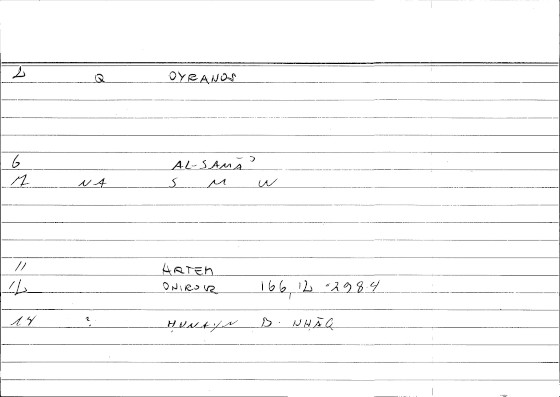 Q OYRANOS
6 AL-SAMĀʾ
12 NA S M W
11 ARTEM
ONIROCR 166,12 - 298.4
14 : ḤUNAYN B. IṢḤĀQ